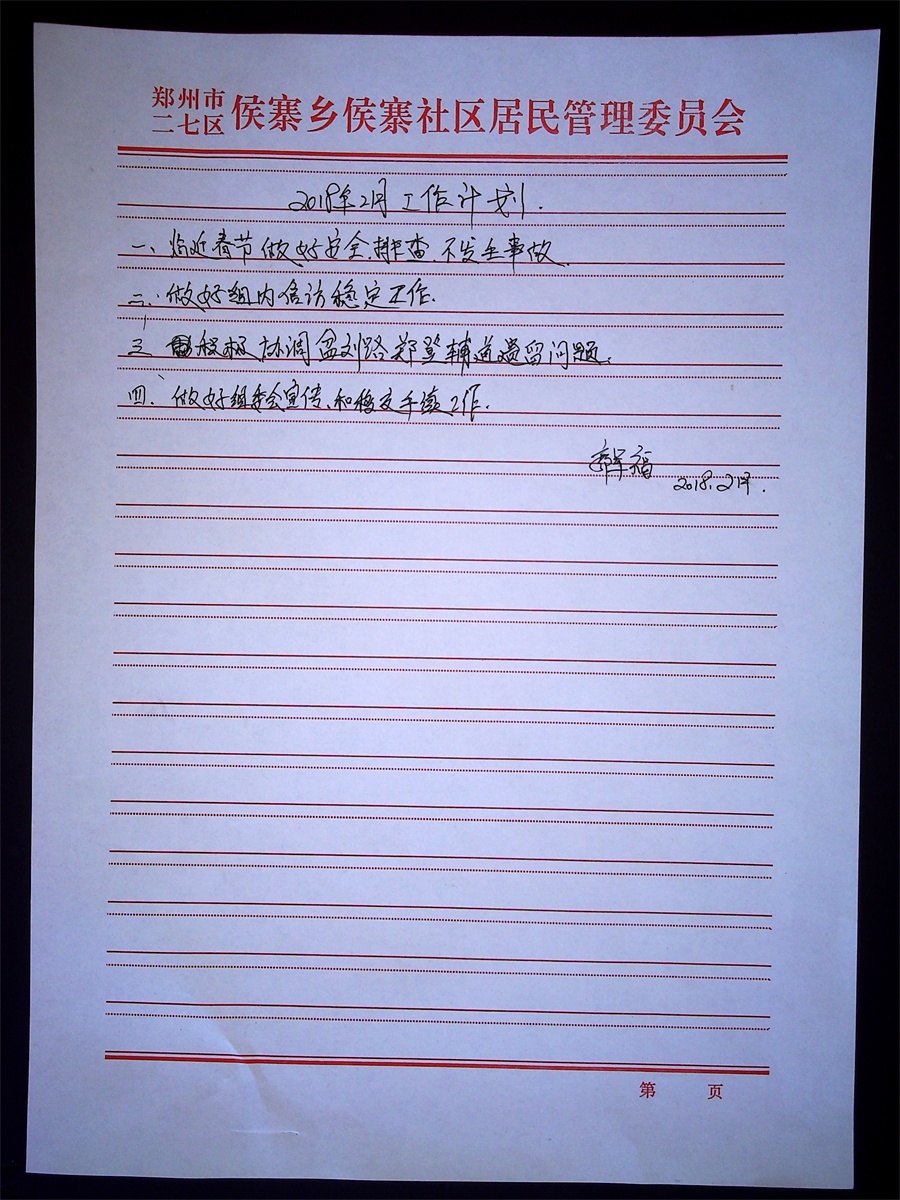 郑州市
二七区 侯寨乡侯寨社区居民管理委员会
2018年2月工作计划.
一、临近春节做好安全排查、不发生事故.
二、做好组内信访稳定工作.
三 积极协调盆刘路郑登辅道遗留问题.
四、做好组委会宣传、和移交手续工作.
福
2018.2月.
第 页